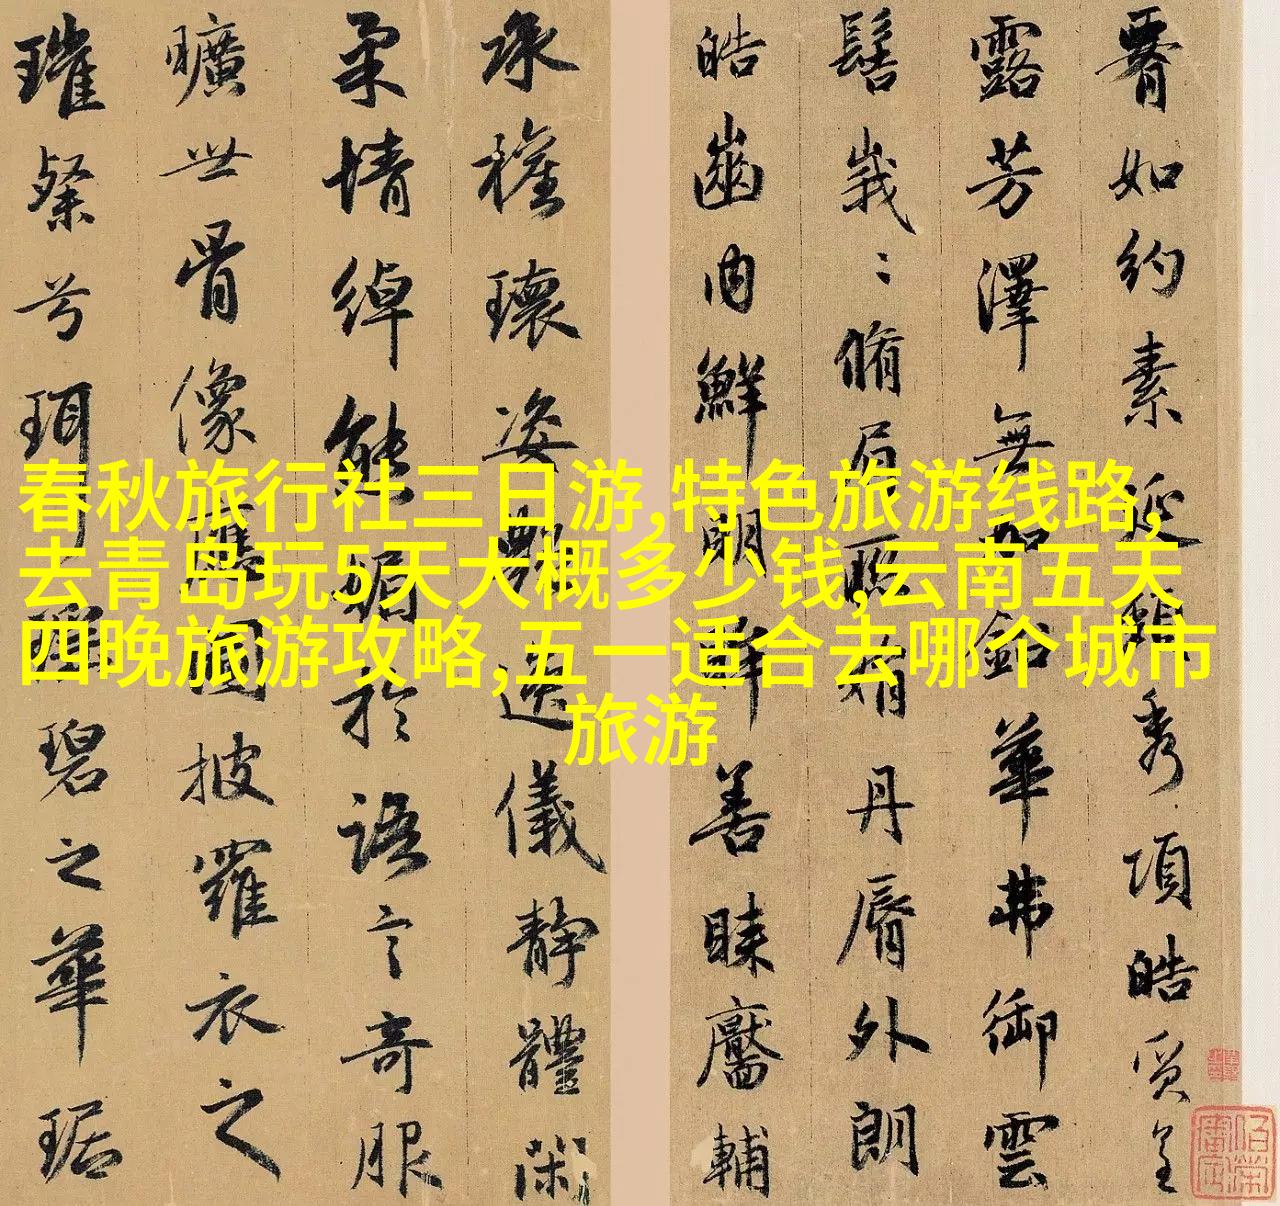 春秋旅行社三日游,特色旅游线路,
去青岛玩5天大概多少钱,云南五天
四晚旅游攻略,五一适合去哪个城市
旅游
腰如約素延頸秀項皓質呈
露芳澤無加鉛華弗御雲
髻峩〻脩眉聯娟丹脣外朗
皓齒内鮮明眸善睞靨輔
承權瓌姿艷逸儀靜體閑
柔情綽態媚於語言奇服
曠世骨像應圖披羅衣之
璀粲兮珥瑤碧之華琚